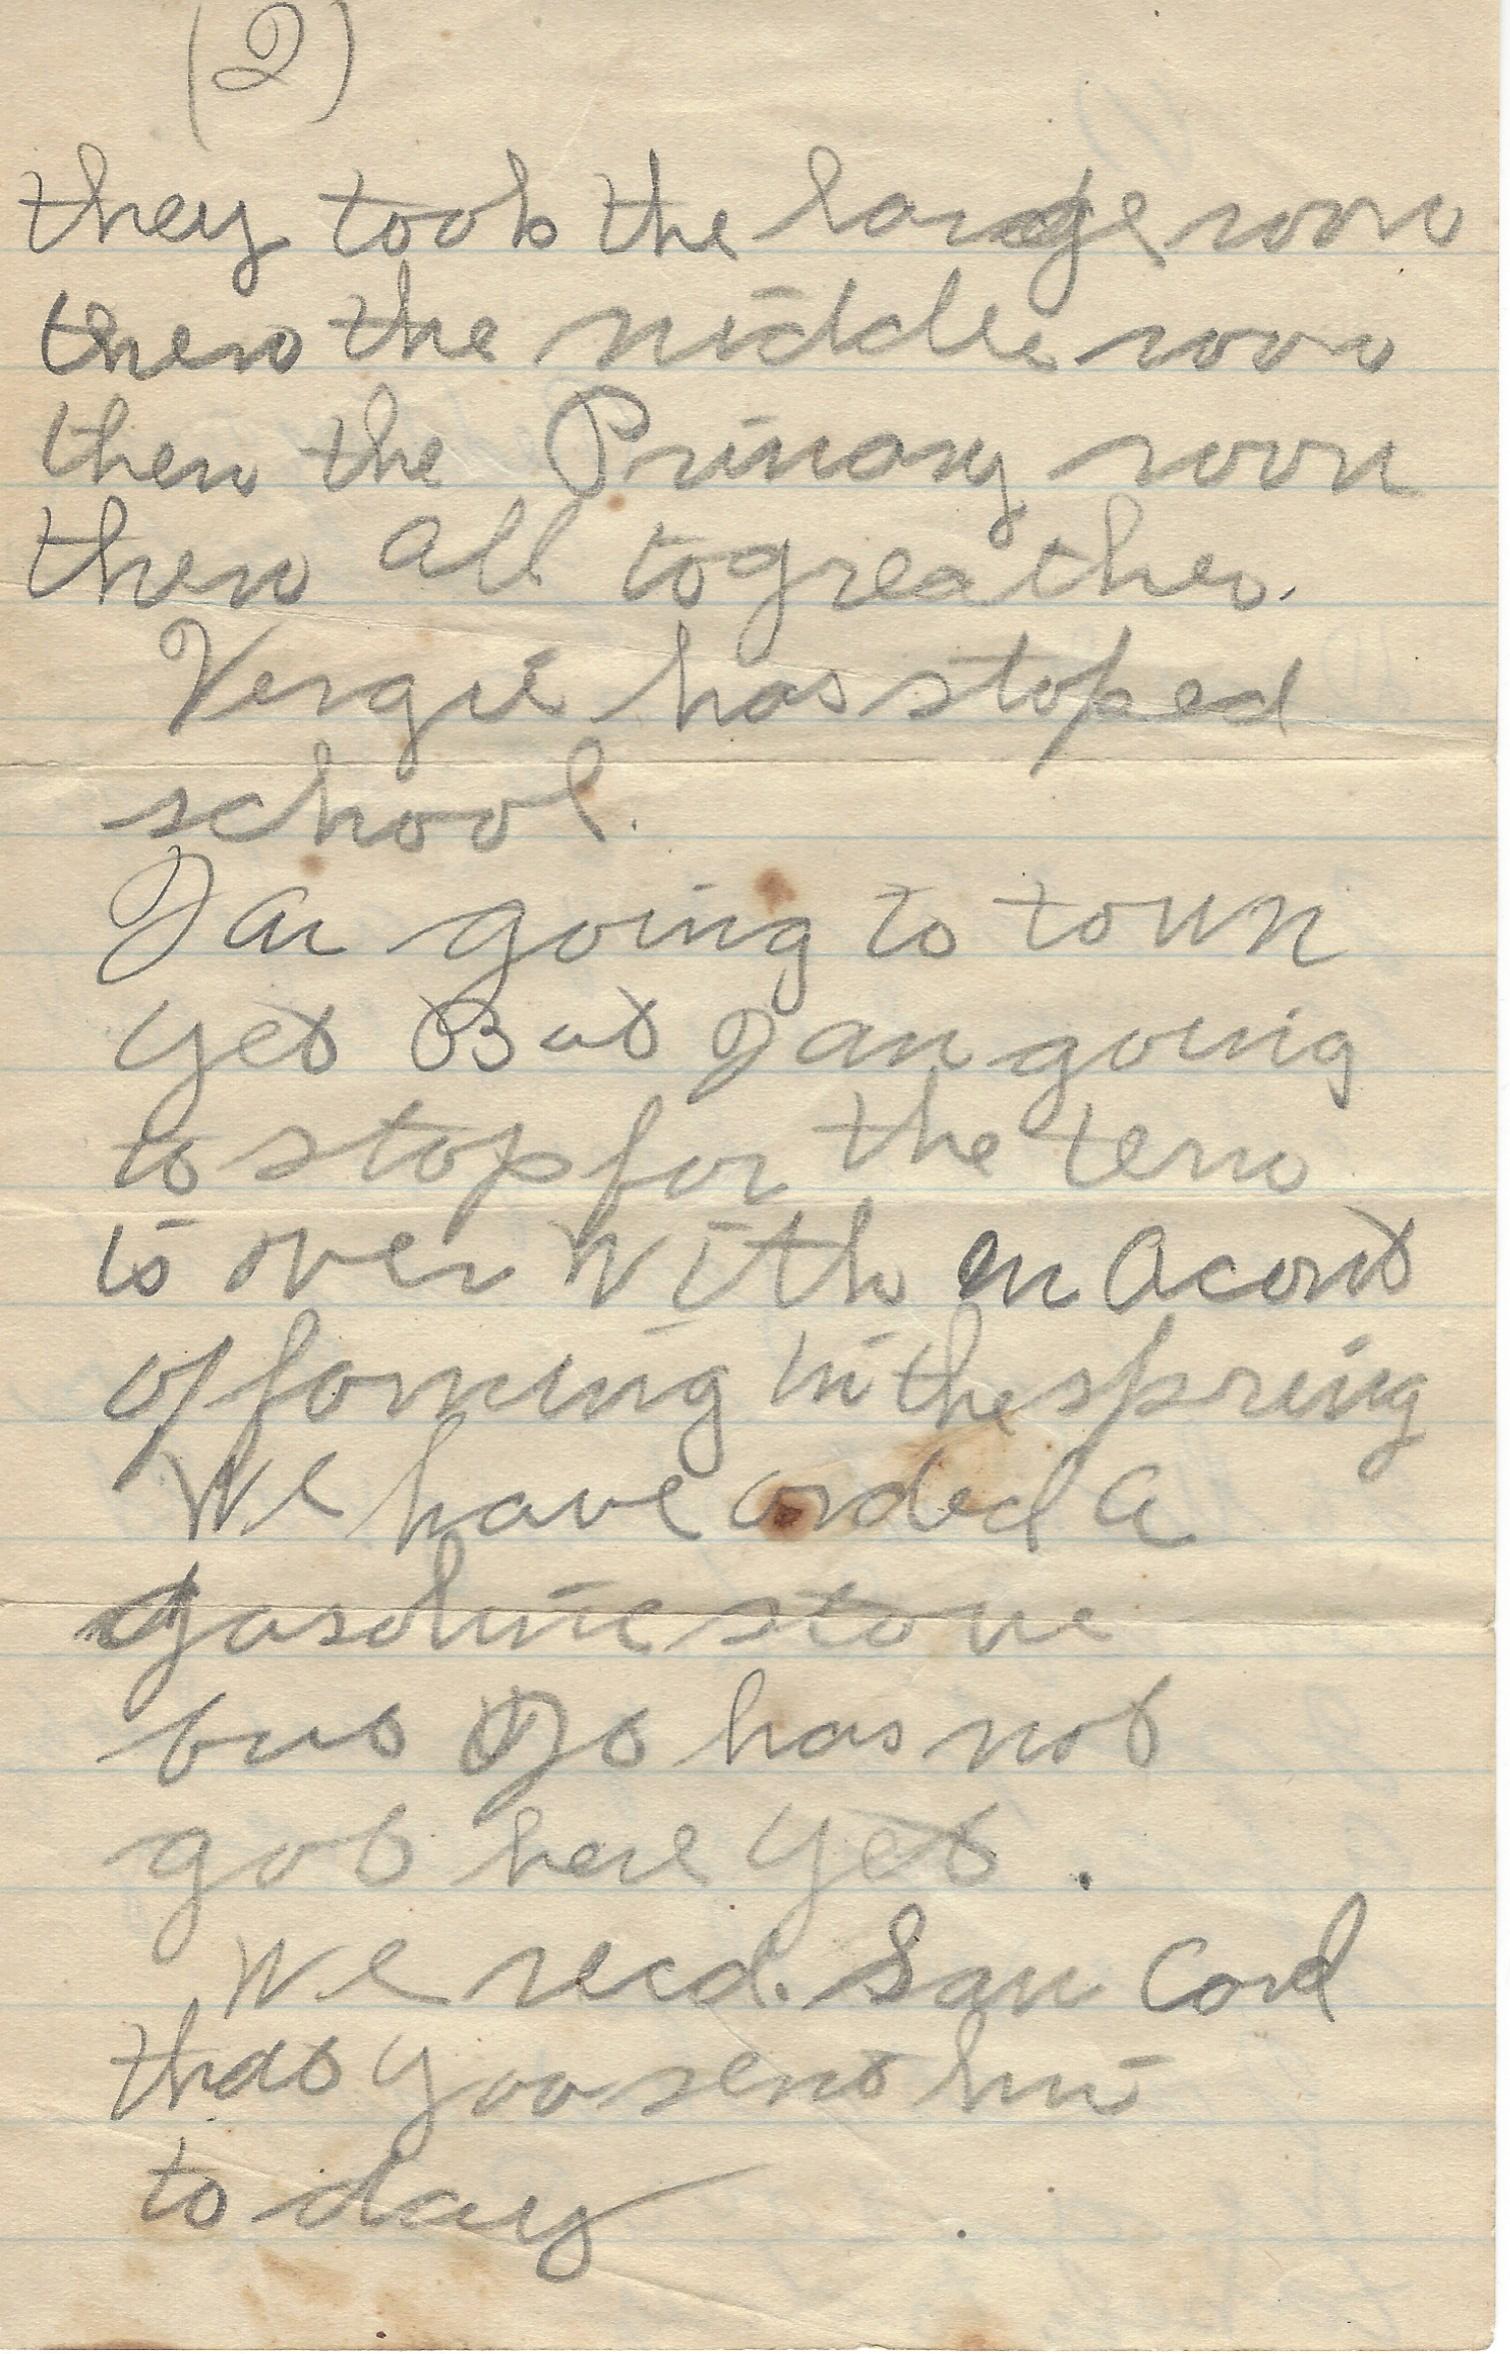 (2)
they took the large room
then the middle room
then the Primary room
then all togreather.
Vergie has stoped
school.
I am going to town
yet But I am going
to stop for the term
is over with on acont
of farming in the spring
We have orded a
gasoline stove
but it has not
got here yet.
We recd. Sam Card
that you sent him
to day